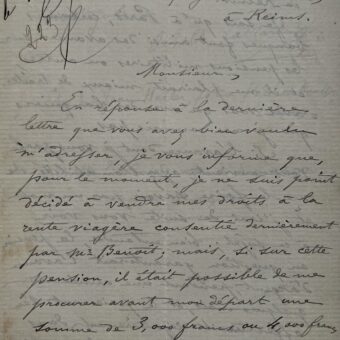 à Reims.
Monsieur,
En réponse à la dernière
lettre que vous avez bien voulu
m'adresser, je vous informe que,
pour le moment, je ne suis point
décidé à vendre mes droits à la
rente viagère consentie dernièrement
par Mr Benoît; mais, si sur cette
pension, il était possible de me
procurer avant mon départ une
somme de 3,000 francs ou 4,000 francs